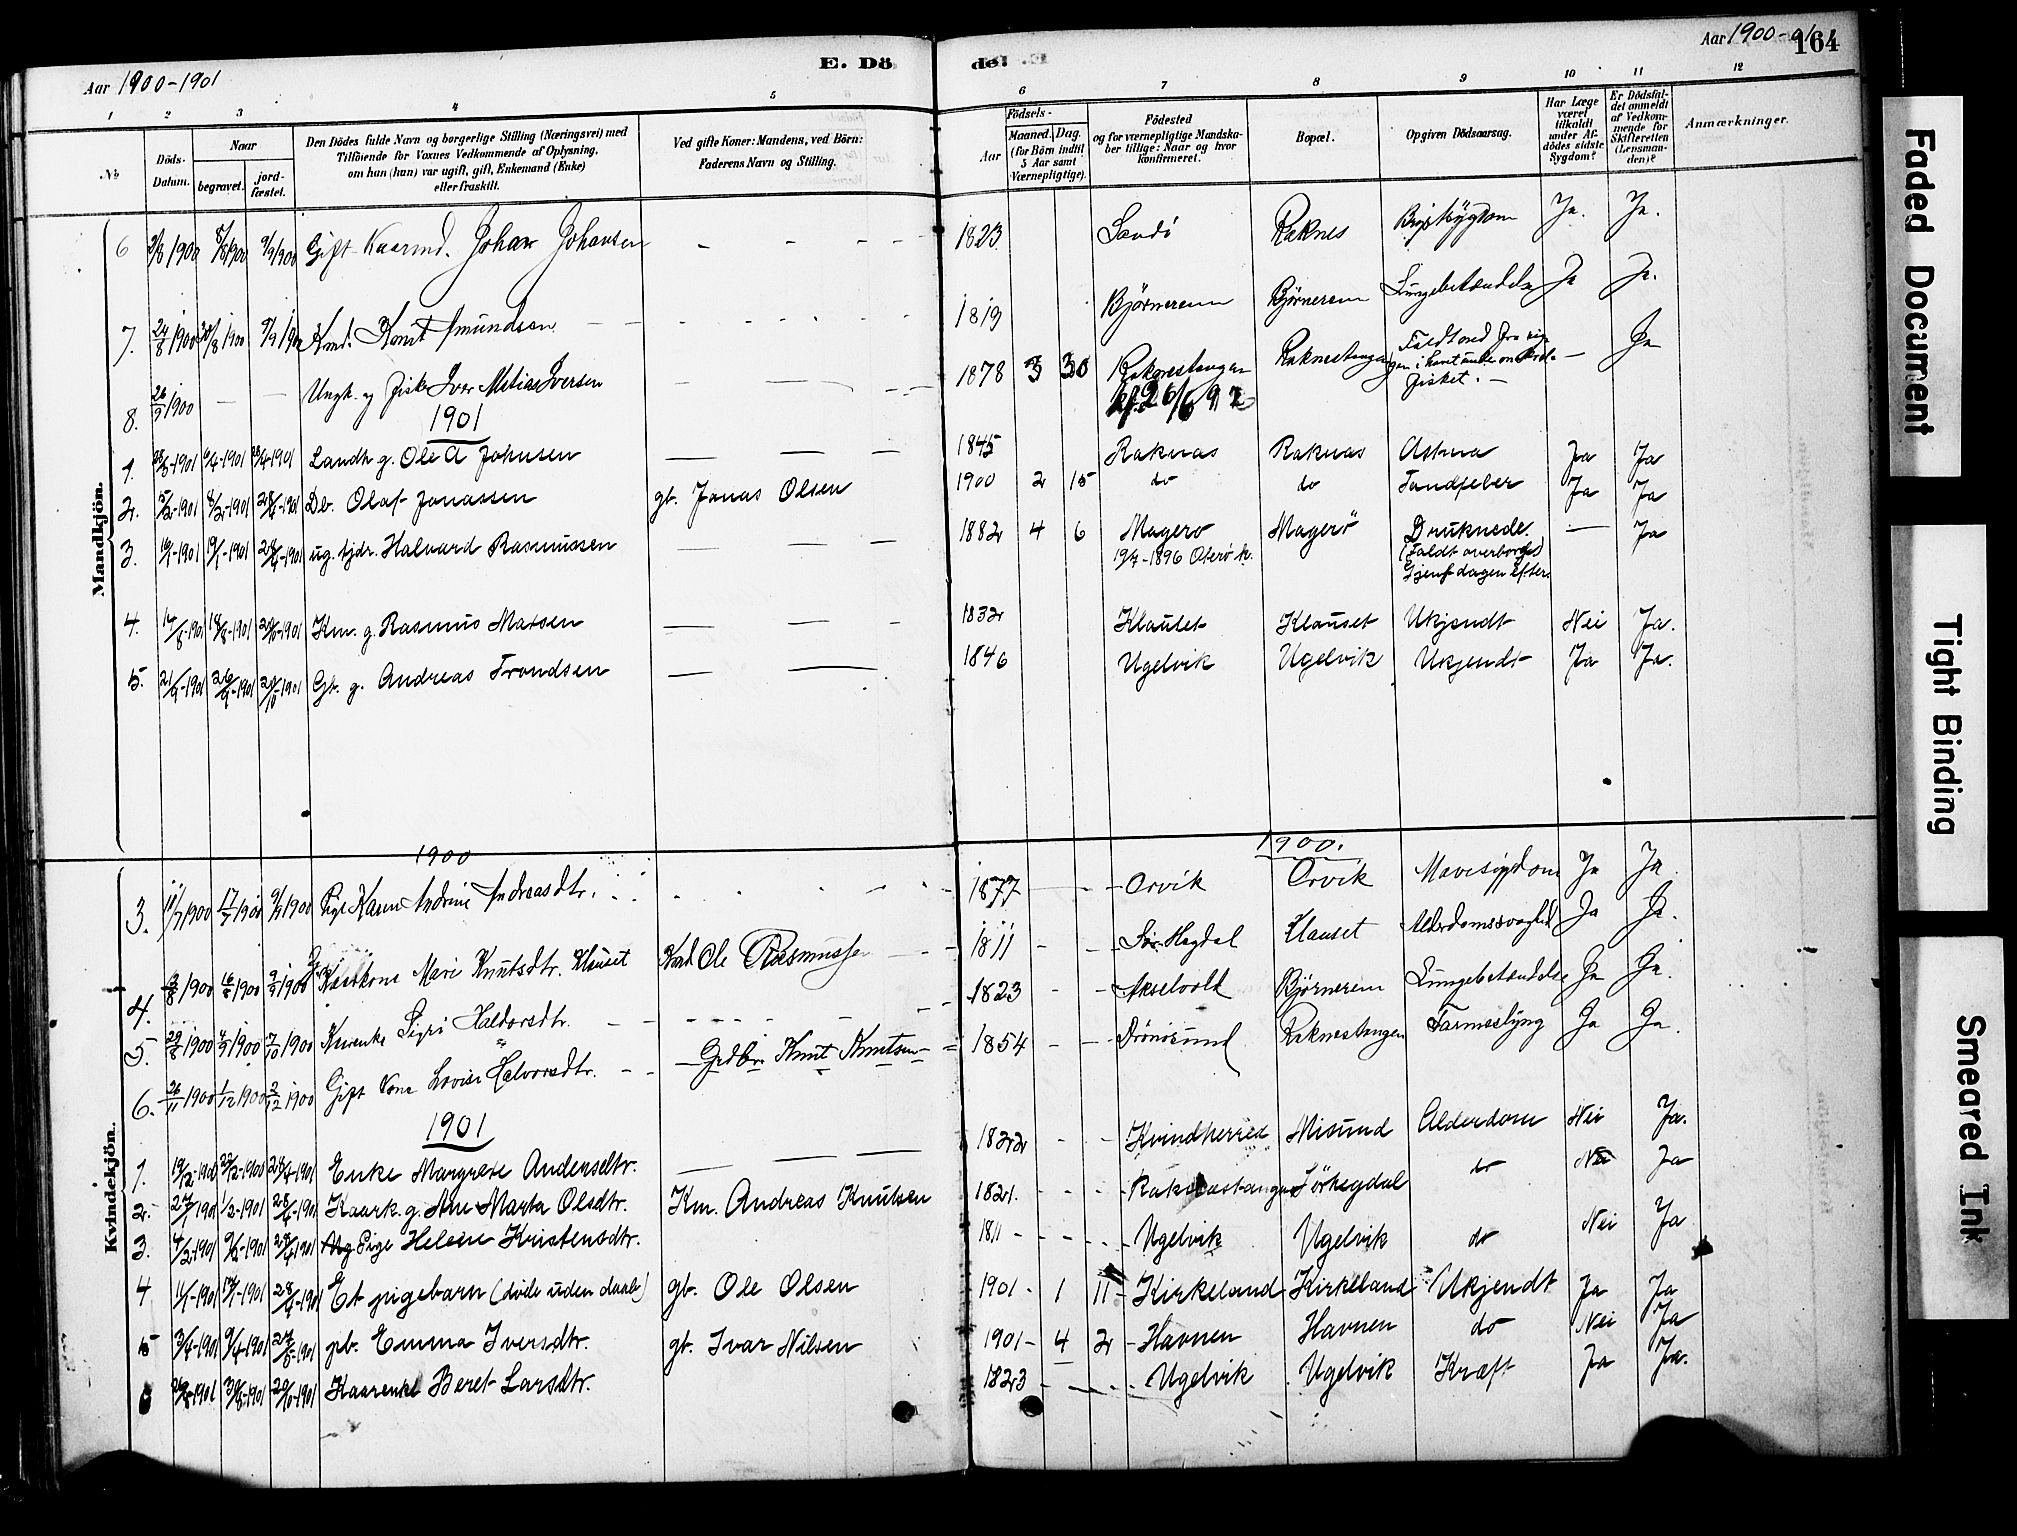 Aar 1900-1901
E. Dö
1 2 3 4 5
№
Döds-Datum.
Naar
begravet.
jord-fæstet.
Den Dödes fulde Navn og borgerlige Stilling (Næringsvei) med
Tilföiende for Voxnes Vedkommende af Oplysning,
om han (hun) var ugift, gift, Enkemand (Enke)
eller fraskilt.
Ved gifte Koner: Mandens, ved Börn:
Faderens Navn og Stilling.
Mandkjön.
6 1900 1900 1900 Gift Kaarmd. Johan Johansen
7. 24/8 1900 30/8 1900 1900 Knut Amundsen
8. 26/9 1900 — — Ungk. og Fisker Iver Matias Iversen
1901
1. 1901 1901 1901 Landh g. Ole A Johnsen
2. 5/2-1901 8/2-1901 28/4-1901 Db. Olaf Jonassen gb. Jonas Olsen
3. 1901 19/1-1901 28/4-1901 ug. fjdr. Halvard Rasmussen
4. 14/8-1901 18/8-1901 1901 Km. g. Rasmus Matsen
5. 21/9-1901 26/9-1901 20/10-1901 Gb. g. Andreas Trondsen
Kvindekjön.
1900
3. 11/7 1900 17/7 1900 1900 Pige Karen Andrine Andreasdtr.
4. 1900 16/8 1900 1900 Mari Knutsdtr. Klauset Ole Rasmussen
5. 29/8 1900 4/9 1900 7/10 1900 Kaarenke Sigri Haldorsdtr.
6. 26/11 1900 1/12 1900 2/12 1900 Gift Kone Lovise Halvorsdtr. Gedbr. Knut Knutsen
1901
1. 19/2-1900 1900 28/4-1901 Enke Margrete Andersdtr.
2. 27/1 1901 1/2-1901 28/4-1901 Kaark. g. Ane Marta Olsdtr. Km. Andreas Knutsen
3. 4/2-1901 9/2-1901 28/4-1901 Pige Helene Kristensdtr.
4 11/1-1901 1901 28/4-1901 Et pigebarn (döde uden daab) gb. Ole Olsen
5 3/4-1901 9/4-1901 27/5-1901 pb. Emma Iversdtr. gb. Ivar Nilsen
6 1901 1901 20/10-1901 Kaarenke Beret Larsdtr.
Aar 1900-01 164
de.
6 7 8 9 10 11 12
Födsels-
Aar
Maaned. Dag.
(for Börn indtil
5 Aar samt
Værnepligtige).
Födested
og for værnepligtige Mandska-
ber tillige: Naar og hvor
konfirmeret.
Bopæl.
Opgiven Dödsaarsag.
Har Læge
været
tilkaldt
under Af-
dödes sidste
Sygdom?
Er Dödsfal-
det anmeldt
af Vedkom-
mende for
Skifteretten
(Lensman-
den)?
Anmærkninger.
1823 Sandö Raknes Brystsygdom Ja. Ja.
1819 Björnerem Björnerem Lungebetændelse Ja Ja.
1878 3 30 Raknestangen Raknestangen Faldt ned fra rig-
gen i havet under
fisket. — — Ja
kf. 26/6 92
1845 Raknes Raknes Astma Ja Ja
1900 2 15 do do Tandfeber Ja Ja
1882 4 6 Magerö Magerö Druknede. — Ja
19/4-1896 Oterö k. (Faldt overbord)
dagen efter.
1832 Klauset Klauset Ukjendt Nei Ja.
1846 Ugelvik Ugelvik Ukjendt Ja Ja.
1900.
1877 Orvik Orvik Mavesygdom Ja Ja
1811 Sör Hegdal Klauset Alderdomssvaghed Ja Ja.
1823 Akselvold Björnerem Lungebetændelse Ja Ja.
1854 Drönesund Raknestangen Tarmeslyng Ja Ja
1822 Kvindherred Misund Alderdom Nei Ja.
1821. Raknestangen Sörhegdal do Nei Ja
1811 Ugelvik Ugelvik do Nei Ja
1901 1 11 Kirkeland Kirkeland Ukjendt Ja Ja
1901 4 2 Havnen Havnen do Nei Ja
1823 Ugelvik Ugelvik Kræft Ja Ja.
Faded Document
Tight Binding
Smeared Ink